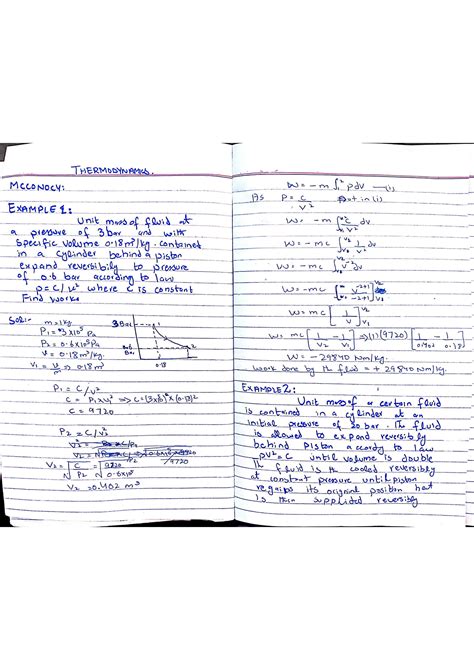 THERMODYNAMICS.
MCCONOCY:
EXAMPLE 1:
Unit mass of fluid at
a pressure of 3 bar and with
specific volume 0.18 m³/kg. contained
in a cylinder behind a piston
expand reversibily to pressure
of 0.6 bar according to law
p = C/v² where C is constant
Find work.
Sol:- m = 1 kg
P₁ = 3x10⁵ Pa
P₂ = 0.6x10⁵ Pa
V = 0.18 m³/kg.
V₁ = V/m ⇒ 0.18 m³
3 Bar 1
0.6 Bar 2
0.18
P₁ = C/v²
C = P₁V₁² ⇒ C = (3x10⁵)x(0.18)²
C = 9720
P₂ = C/V₂²
V₂² =
V₂ =
V₂ = √C/P₂ = √9720/0.6x10⁵
V₂ = 0.402 m³
W = -m ∫₁² p dv —(i)
As P = C/V² Put in (i)
W = -m ∫ C/V² dv
W = -mc ∫ 1/V² dv
W = -mc ∫ V⁻² dv
W = -mc [V⁻²⁺¹/-2+1]
W = mc [1/V]
W = mc [1/V₂ - 1/V₁] ⇒ (1)(9720) [1/0.402 - 1/0.18]
W = -29840 Nm/kg.
Work done by the fluid = + 29840 Nm/kg.
EXAMPLE 2:
Unit mass of a certain fluid
is contained in a cylinder at an
initial pressure of 20 bar. The fluid
is allowed to expand reversibly
behind piston accordy to law
pV² = C until volume is double
The fluid is the cooled reversibly
at constant pressure until piston
regains its original position hat
is then supplied reversibly